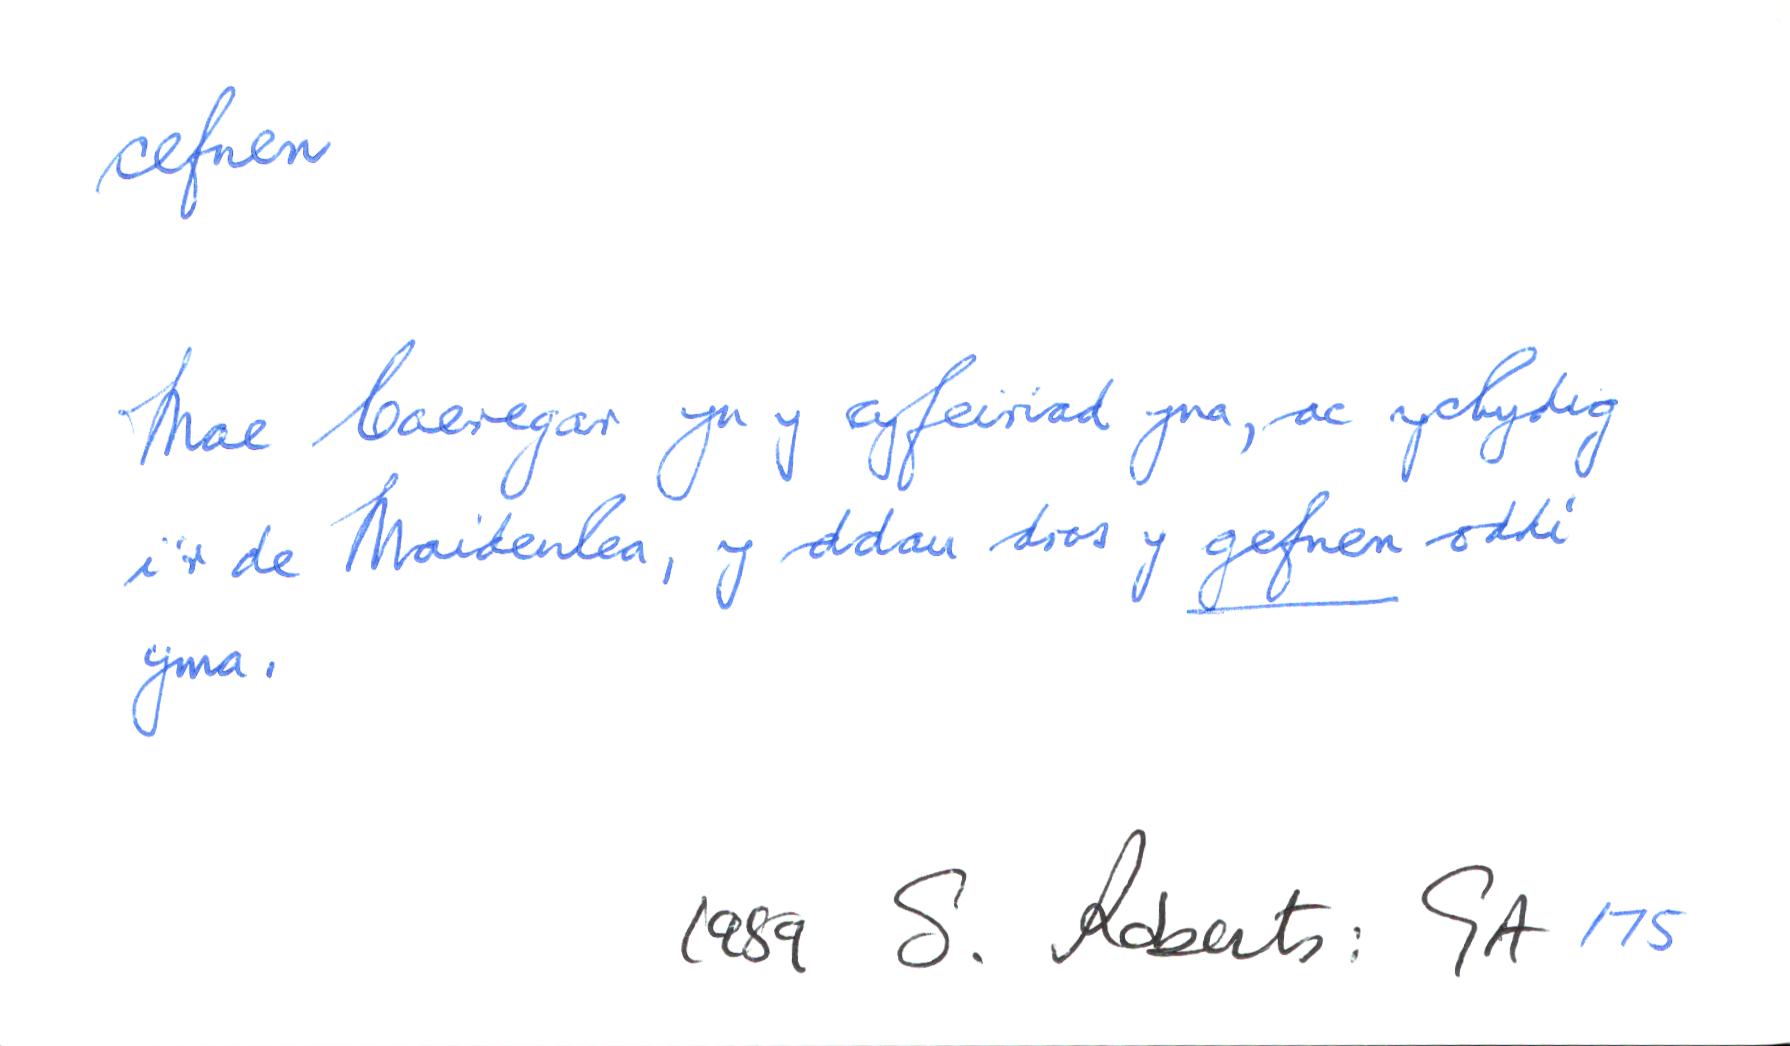 cefnen
Mae Caeregar yn y cyfeiriad yna, ac ychydig
i'r de Maidenlea, y ddau dros y gefnen oddi
yma.
1989 S. Roberts: GA 175